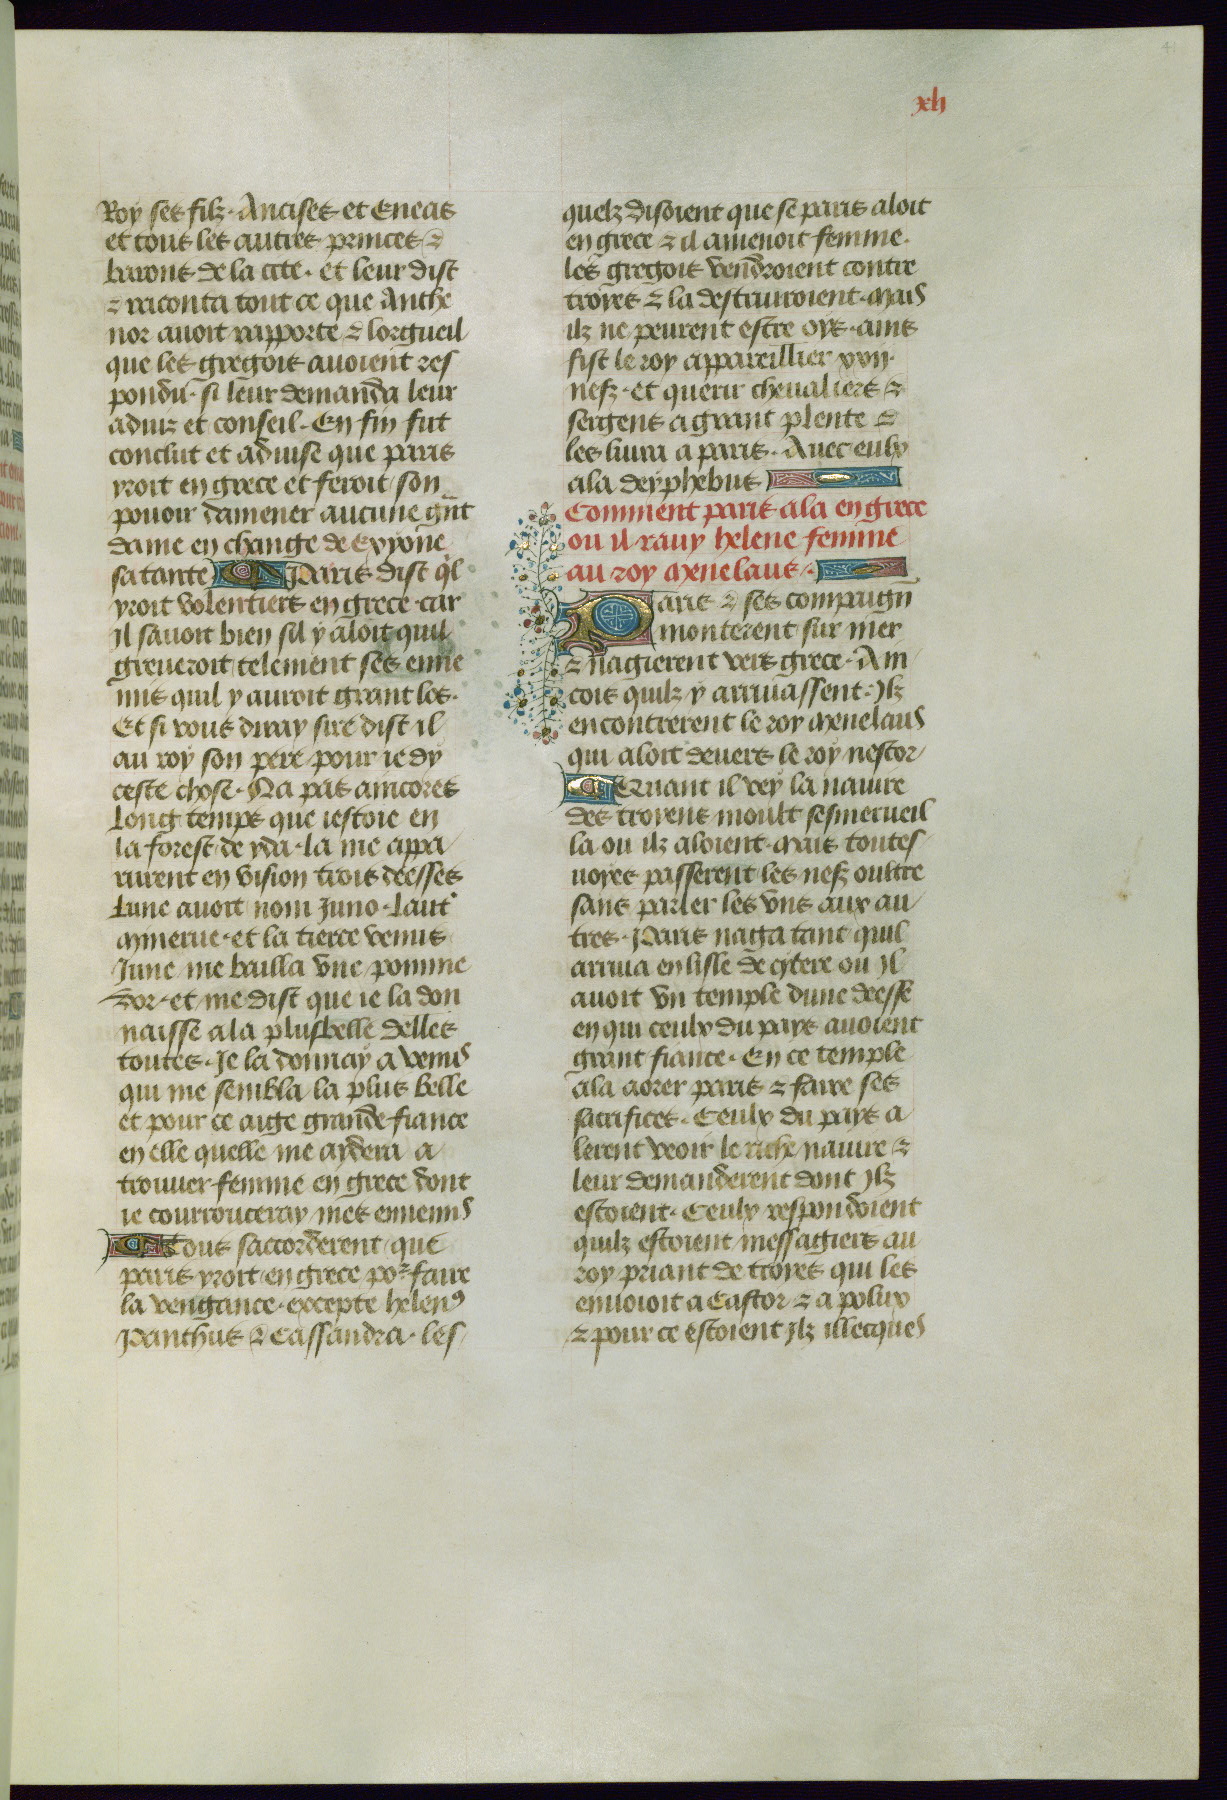 41
xli
Roy ses filz. Ancises et Eneas
et tous les autres princes &
barons de la cite. et leur dist
& raconta tout ce que Anthe
nor avoit rapporte & lorgueil
que les gregois avoient res
pondu. si leur demanda leur
aduiz et conseil. En fin fut
conclut et aduise que paris
yroit en grece et feroit son
pouoir damener aucune gnt
dame en change de Exyone
sa tante Paris dist ql
yroit volentiers en grece car
Il savoit bien sil y aloit quil
greveroit telement ses enne
mis quil y auroit grant los.
Et si vous diray sire dist il
au roy son pere pour ie dy
ceste chose. Na pas aincores
Long temps que iestoie en
la forest de yda. la me appa
rurent en vision trois deesses
Lune avoit nom Juno. laut'
mynerue. et la tierce venus
June me bailla vne pomme
dor. et me dist que ie la don
naisse a la plus belle delles
toutes. Je la donnay a venus
qui me sembla la plus belle
et pour ce aige grande fiance
en elle quelle me aydera a
trouuer femme en grece dont
ie courrouceray mes ennemis
Tous saccorderent que
paris yroit en grece por faire
la vengance. excepte helen9
Panthus & Cassandra. les
quelz disoient que se paris aloit
en grece & il amenoit femme.
les gregois vendroient contre
troyes & la destruiroient. Mais
ilz ne peurent estre oys. ains
fist le roy appareillier xxij.
nefz. et querir chevaliers &
sergens a grant plente &
les liura a paris. Avec eulx
ala deyphebus
Comment paris ala en grece
ou il rauy helene femme
au roy menelaus.
Paris & ses compaign
monterent sur mer
& nagierent vers grece. Ain
cois quilz y arriuassent. Ilz
encontrerent le roy menelaus
qui aloit devers le roy nestor
Quant il vey la navire
des troyens moult sesmerueil
la ou ilz aloient. Mais toutes
uoyes passerent les nefz oultre
sans parler les vns aux au
tres. Paris naga tant quil
arriua en lisle de cytere ou Il
avoit vn temple dune deesse
en qui ceulx du pays avoient
grant fiance. En ce temple
ala aorer paris & faire ses
sacrifices. Ceulx du pays a
lerent veoir le riche navire &
leur demanderent dont Ilz
estoient. Ceulx respondoient
quilz estoient messagiers au
roy priant de troyes qui les
enuoioit a Castor & a polux
& pour ce estoient Ilz illecques